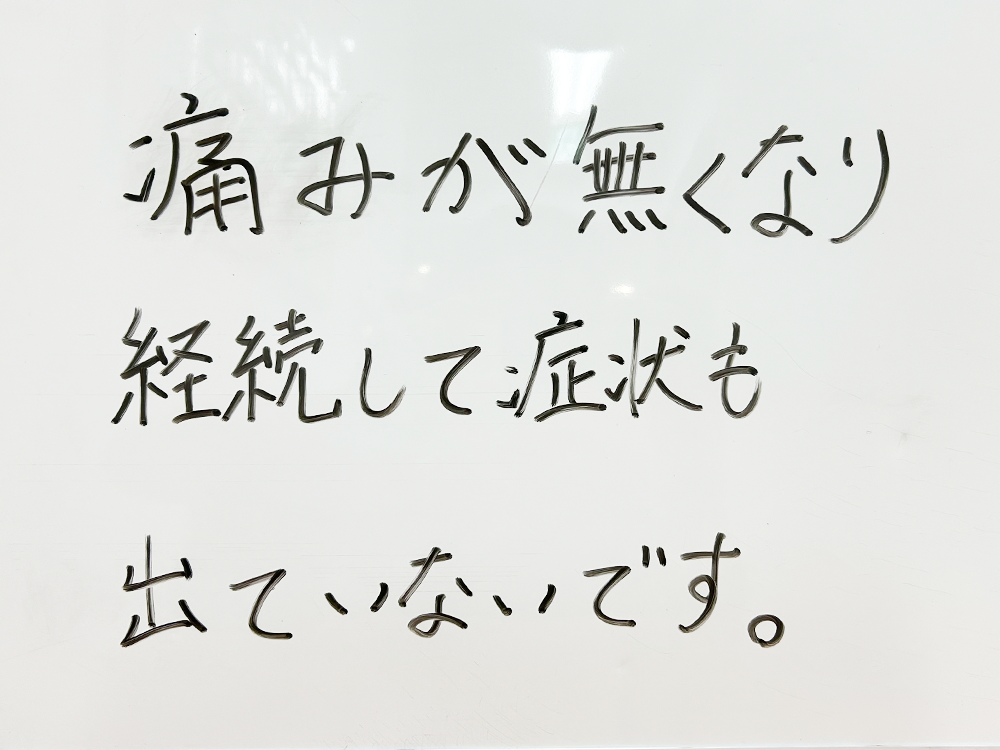 痛みが無くなり
経続して症状も
出ていないです。